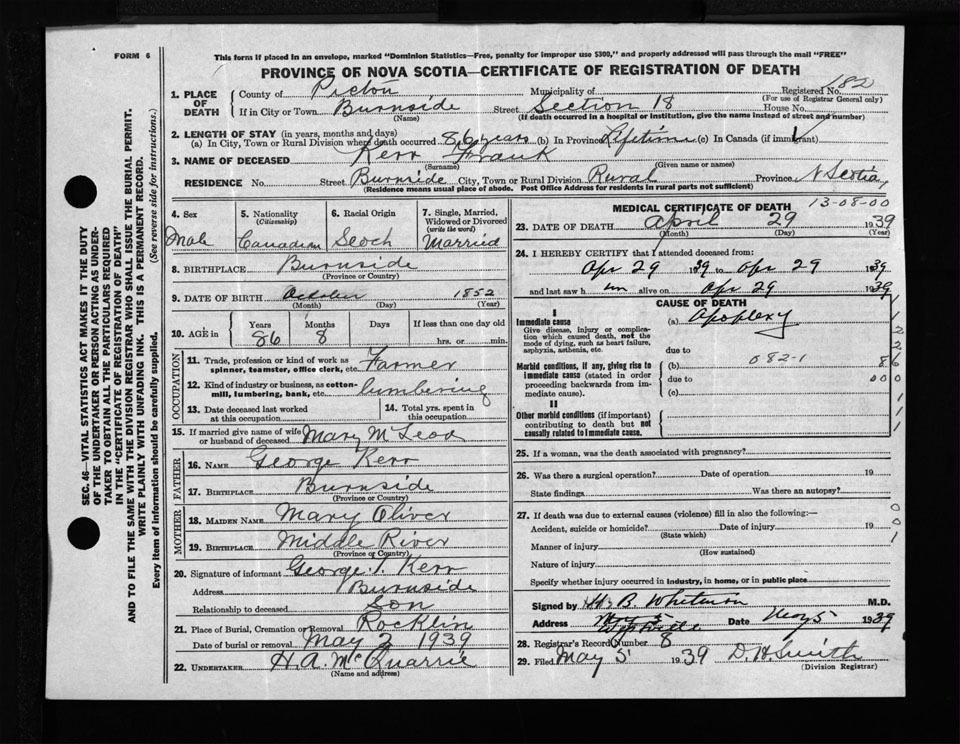 FORM 6
This form if placed in an envelope, marked "Dominion Statistics—Free, penalty for improper use $300," and properly addressed will pass through the mail "FREE"
PROVINCE OF NOVA SCOTIA—CERTIFICATE OF REGISTRATION OF DEATH
SEC. 46—VITAL STATISTICS ACT MAKES IT THE DUTY
OF THE UNDERTAKER OR PERSON ACTING AS UNDER-
TAKER TO OBTAIN ALL THE PARTICULARS REQUIRED
IN THE "CERTIFICATE OF REGISTRATION OF DEATH"
AND TO FILE THE SAME WITH THE DIVISION REGISTRAR WHO SHALL ISSUE THE BURIAL PERMIT.
WRITE PLAINLY WITH UNFADING INK. THIS IS A PERMANENT RECORD.
Every item of information should be carefully supplied. (See reverse side for instructions.)
1. PLACE OF DEATH
County of Pictou Municipality of Registered No. 182
(For use of Registrar General only)
If in City or Town Burnside Street Section 18 House No.
(Name) (If death occurred in a hospital or institution, give the name instead of street and number)
2. LENGTH OF STAY (in years, months and days)
(a) In City, Town or Rural Division where death occurred 86 years (b) In Province Lifetime (c) In Canada (if immigrant)
3. NAME OF DECEASED Kerr Frank
(Surname) (Given name or names)
RESIDENCE No. Street Burnside City, Town or Rural Division Rural Province N Scotia
(Residence means usual place of abode. Post Office Address for residents in rural parts not sufficient)
4. Sex Male
5. Nationality (Citizenship) Canadian
6. Racial Origin Scoch
7. Single, Married, Widowed or Divorced (write the word) Married
8. BIRTHPLACE Burnside
(Province or Country)
9. DATE OF BIRTH October 1852
(Month) (Day) (Year)
10. AGE in Years Months Days If less than one day old
86 8 hrs. or min.
OCCUPATION
11. Trade, profession or kind of work as spinner, teamster, office clerk, etc. Farmer
12. Kind of industry or business, as cotton-mill, lumbering, bank, etc. lumbering
13. Date deceased last worked at this occupation
14. Total yrs. spent in this occupation
15. If married give name of wife or husband of deceased Mary McLeod
FATHER
16. NAME George Kerr
17. BIRTHPLACE Burnside
(Province or Country)
MOTHER
18. MAIDEN NAME Mary Oliver
19. BIRTHPLACE Middle River
(Province or Country)
20. Signature of informant George T. Kerr
Address Burnside
Relationship to deceased Son
21. Place of Burial, Cremation or Removal Rocklin
Date of burial or removal May 2 1939
22. UNDERTAKER H.A. McQuarrie
(Name and address)
MEDICAL CERTIFICATE OF DEATH 13-08-00
23. DATE OF DEATH April 29 1939
(Month) (Day) (Year)
24. I HEREBY CERTIFY that I attended deceased from:
Apr 29 1939 to Apr 29 1939
and last saw him alive on Apr 29 1939
CAUSE OF DEATH
I
Immediate cause (a) Apoplexy
Give disease, injury or complication which caused death, not the mode of dying, such as heart failure, asphyxia, asthenia, etc.
due to
082-1
Morbid conditions, if any, giving rise to immediate cause (stated in order proceeding backwards from immediate cause).
(b)
due to
(c)
II
Other morbid conditions (if important) contributing to death but not causally related to immediate cause.
25. If a woman, was the death associated with pregnancy?
26. Was there a surgical operation? Date of operation 19
State findings Was there an autopsy?
27. If death was due to external causes (violence) fill in also the following:—
Accident, suicide or homicide? Date of injury 19
(State which)
Manner of injury
(How sustained)
Nature of injury
Specify whether injury occurred in industry, in home, or in public place
Signed by H. B. Whitman M.D.
Address Date May 5 1939
28. Registrar's Record Number 8
29. Filed May 5 1939 D. H. Smith
(Division Registrar)